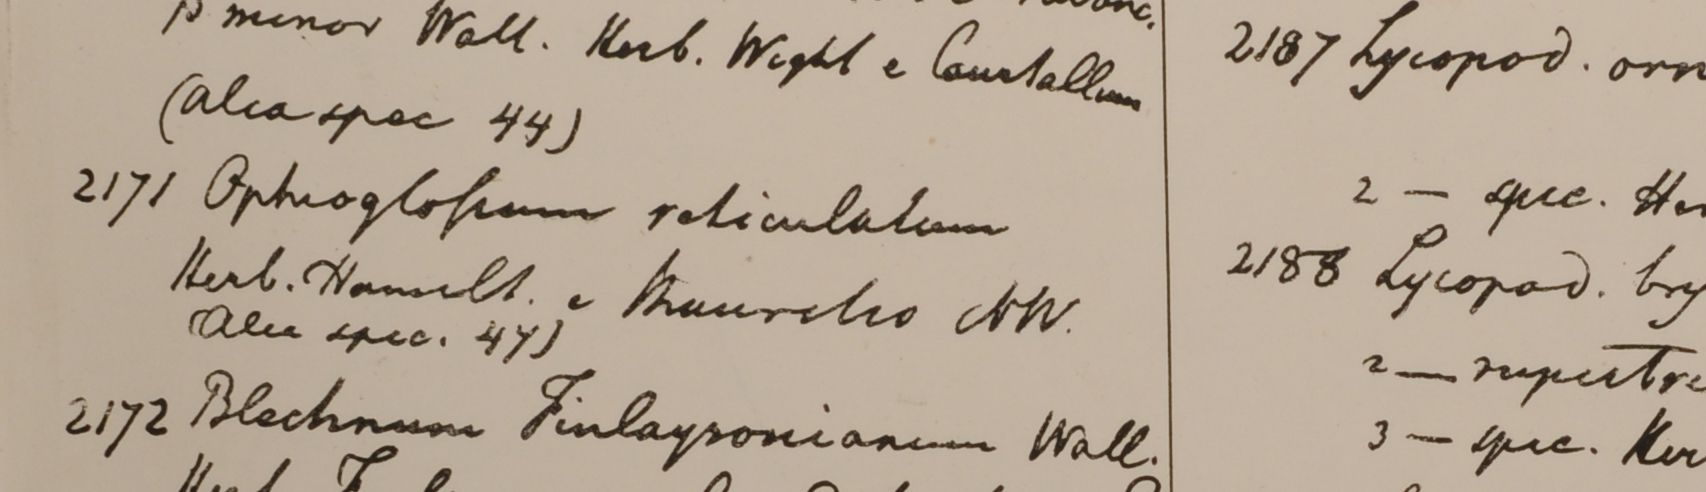 β minor Wall. Herb. Wight e Courtallum
(Alia spec 44)
2171 Ophioglossum reticulatum
Herb. Hamilt. e NW.
(Alia spec. 47)
2172 Blechnum Finlaysonianum Wall.
2187 Lycopod. orn
2 — spec. He
2188 Lycopod. bry
2 — rupestre
3 — spec. Her